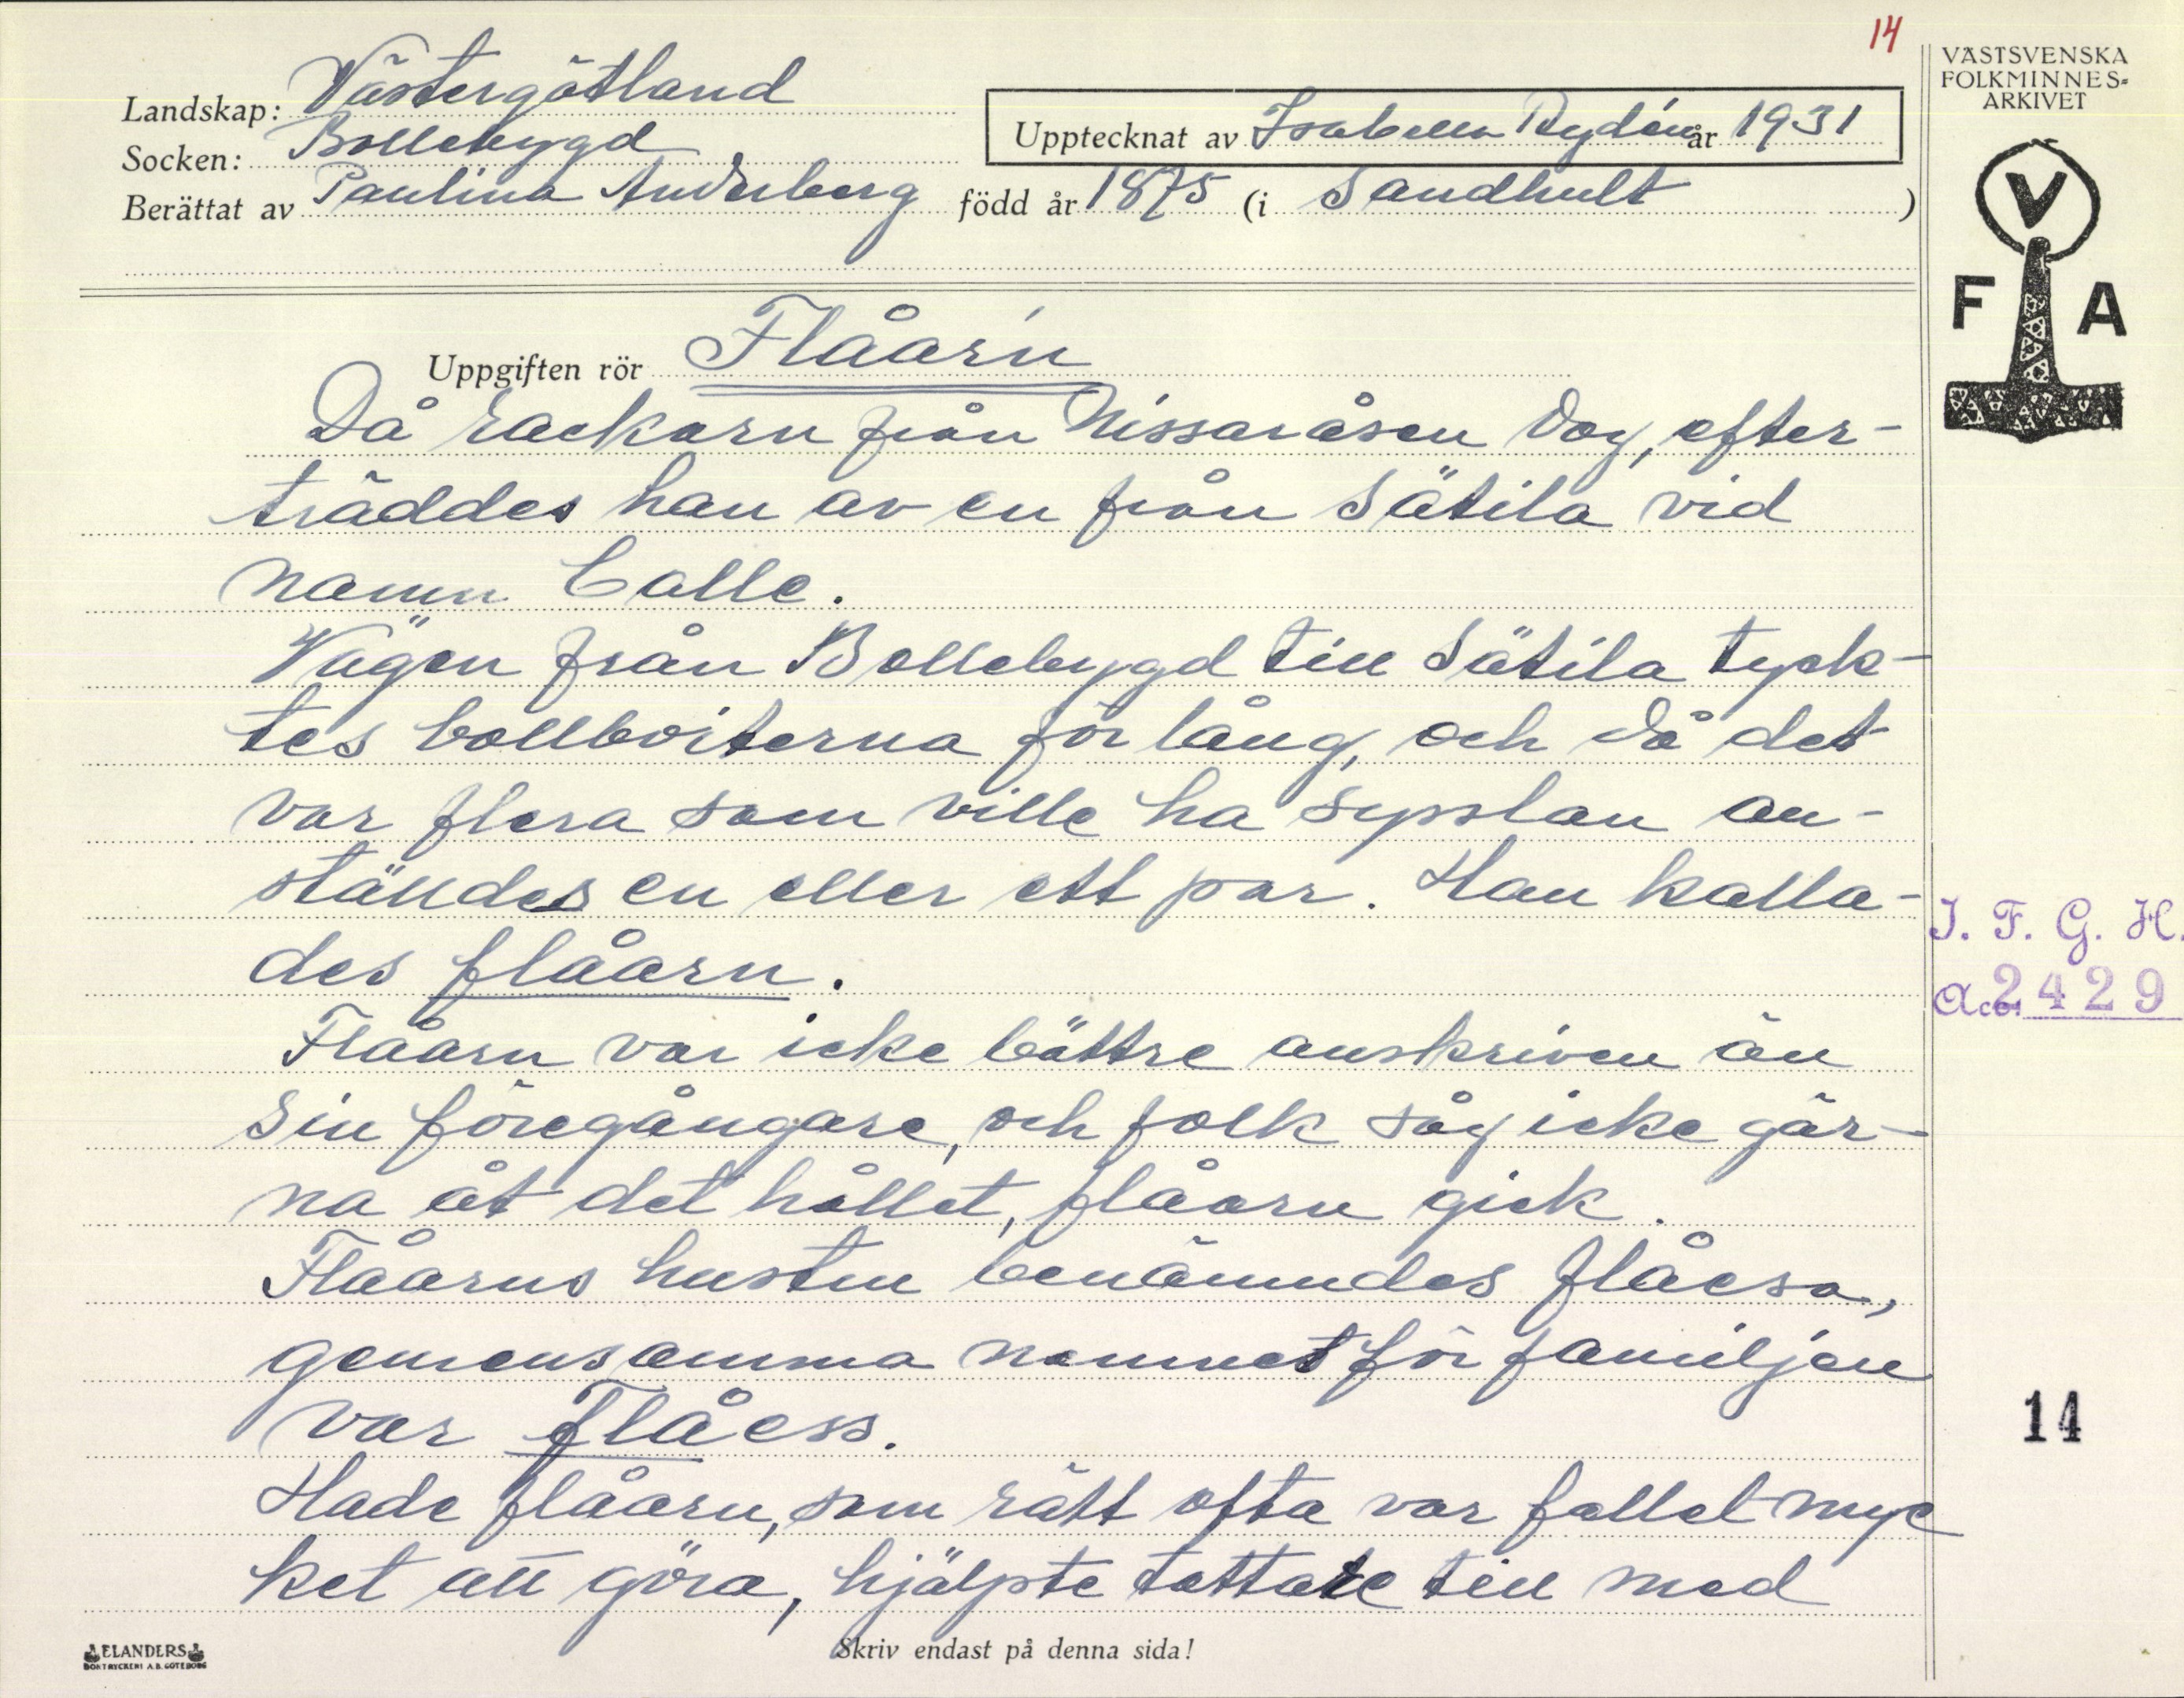 14
VÄSTSVENSKA
FOLKMINNES-
ARKIVET
Landskap: Västergötland
Upptecknat av Isabella Rydén år 1931
Socken: Bollebygd
Berättat av Paulina Anderberg född år 1875 (i Sandhult )
V
F A
Uppgiften rör Flåarn
Då rackarn från Nissaråsen dog, efter-
träddes han av en från Sätila vid
namn Calle.
Vägen från Bollebygd till Sätila tyck-
tes bollboiterna för lång, och då det
var flera som ville ha sysslan an-
ställdes en eller ett par. Han kalla-
des flåarn.
Flåarn var icke bättre anskriven än
sin föregångare, och folk såg icke gär-
na åt det hållet, flåarn gick.
Flåarns hustru benämndes flåesa,
gemensamma namnet för familjen
var Flåess.
Hade flåarn, som rätt ofta var fallet myc
ket att göra, hjälpte tattare till med
I. F. G. H.
Acc. 2429
14
ELANDERS
BOKTRYCKERI A.B. GÖTEBORG
Skriv endast på denna sida!